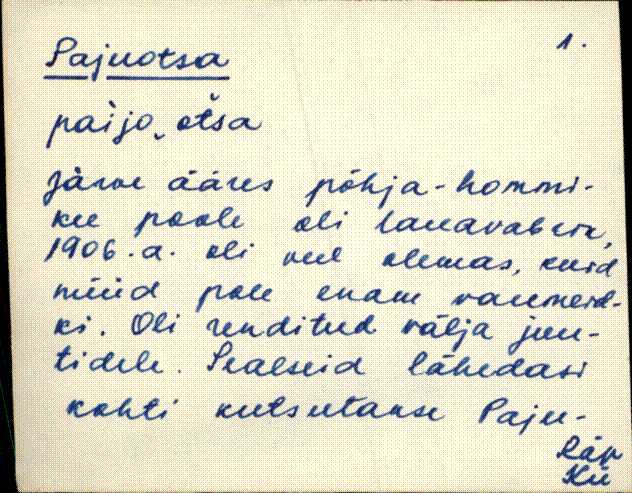 Pajuotsa
1.
pàijo͜ otša
Järve ääres põhja-hommi-
ku poole oli lauavabrik,
1906.a. oli veel olemas, kuid
nüüd pole enam varemeid-
ki. Oli renditud välja juu-
tidele. Sealseid lähedasi
kohti kutsutakse Paju-
Räp
Kü